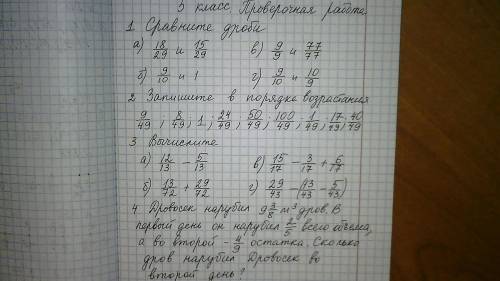 5 класс Проверочная работа
1 Сравните дроби
а) 18/29 и 15/29 в) 9/9 и 77/77
б) 9/10 и 1 г) 9/10 и 10/9
2 Запишите в порядке возрастания
9/49 ; 8/49 ; 1 ; 24/49 ; 50/49 ; 100/49 ; 1/49 ; 17/49 ; 40/49
3 Вычислите
а) 12/13 - 5/13 в) 15/17 - 3/17 + 6/17
б) 13/72 + 29/72 г) 29/43 - (13/43 - 5/43)
4 Дровосек нарубил 9 3/8 м³ дров. В
первый день он нарубил 2/5 всего объема,
а во второй - 4/9 остатка. Сколько
дров нарубил Дровосек во
второй день?